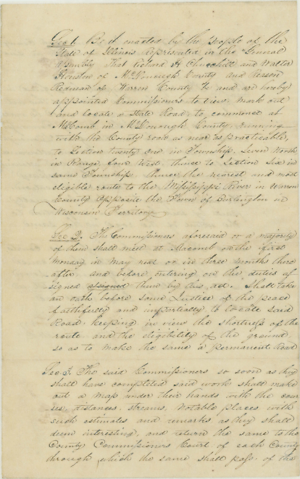 Sec 1. Be it enacted by the people of the
State of Illinois represented in the General
Assembly That Richard H Churchill and Walter
of McDonough County and
of Warren County be and are hereby
appointed Commissioners to view mark out
and locate a State Road to commence at
Macomb in McDonough County running
with the County road as near as practicable,
to Section Twenty one in Township Seven North
in Range four West, thence to Section Six in
same Township thence the nearest and most
eligible route to the Mississippi River in Warren
County opposite the Town of Burlington in
Wisconsin Territory.
Sec 2. The Commissioners aforesaid or a majority
of them shall meet at Macomb on the first
monday in may next or in three months there
after and before entering on the duties as
signed assigned them by this act. Shall take
an oath before some Justice of the peace
faithfully and impartially to locate said
Road keeping in view the shortness of the
route and the eligibility of the ground
so as to make the same a permanent road
Sec 3. The said Commissioners so soon as they
shall have completed said work shall make
out a map under their hands with the cour
ses, distances, streams, notable places with
such estimates and remarks as they shall
deem interesting, and return the same to the
County Commissioners Court of each County
through which the same shall pass, of the